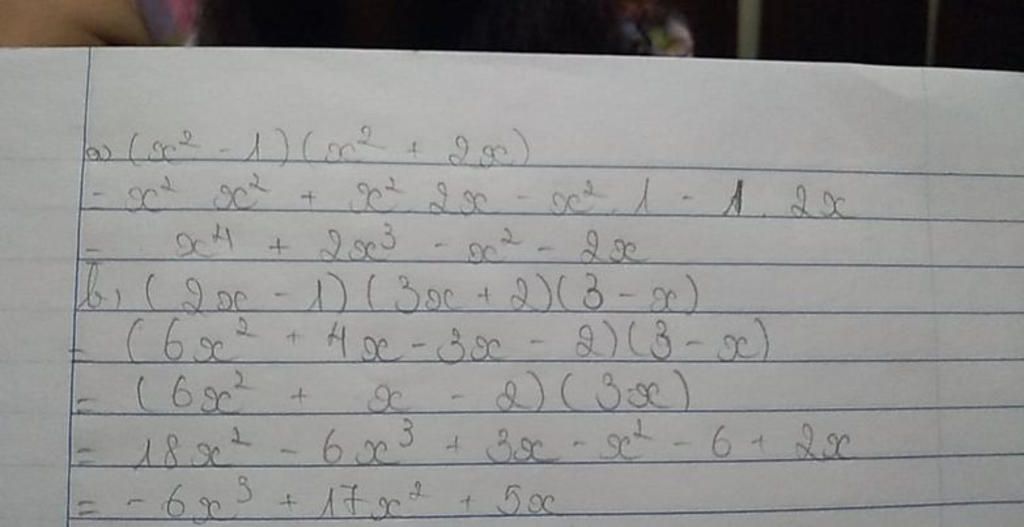 a) (x² - 1)(x² + 2x)
= x² x² + x² 2x - x².1 - 1.2x
= x⁴ + 2x³ - x² - 2x
b, (2x - 1)(3x + 2)(3 - x)
= (6x² + 4x - 3x - 2)(3 - x)
= (6x² + x - 2)(3x)
= 18x² - 6x³ + 3x - x² - 6 + 2x
= - 6x³ + 17x² + 5x